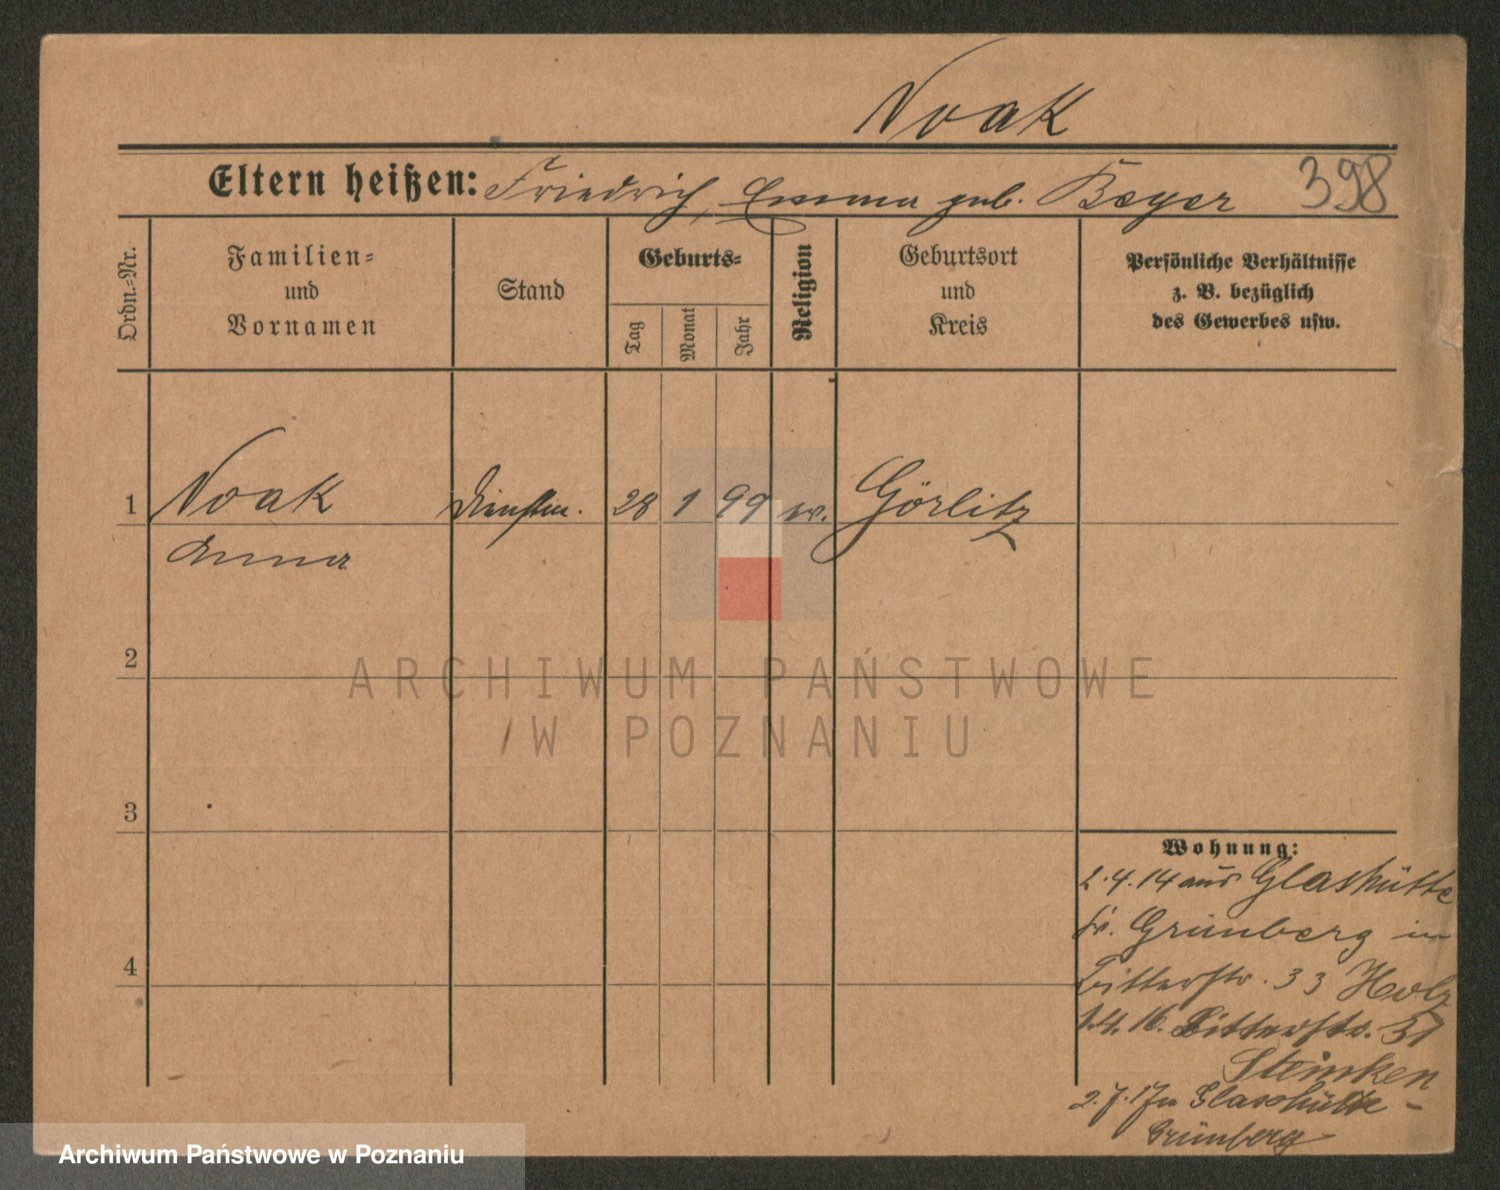 Noak
Eltern heißen: Friedrich, Emma geb. Beyer 398
Ordn.=Nr.
Familien=
und
Vornamen
Stand
Geburts=
Tag
Monat
Jahr
Religion
Geburtsort
und
Kreis
Persönliche Verhältnisse
z. B. bezüglich
des Gewerbes usw.
1 Noak Dienstm. 28 1 99 ev. Görlitz
Anna
2
3
4
Wohnung:
2.4.14 aus Glashütte
Kr. Grünberg in
Ritterstr. 33 Holz
1.4.16. Ritterstr. 37
Steinken
2.7.17 n Glashütte -
Grünberg
ARCHIWUM PAŃSTWOWE
W POZNANIU
Archiwum Państwowe w Poznaniu